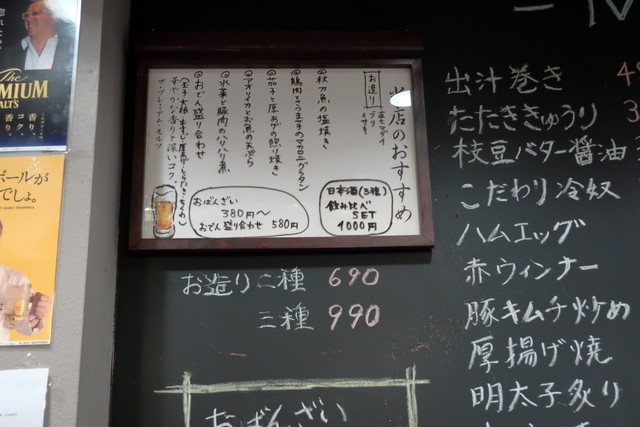 当店のおすすめ
お造り
ブリ
イサキ
◎秋刀魚の塩焼き
◎鶏肉ときのこのマカロニグラタン
◎茄子と厚あげの照り焼き
◎アオリイカとお魚の天ぷら
◎水菜と豚肉のハリハリ煮
◎おでん盛り合わせ
華やかな香りと深いコク。
ザ・プレミアム・モルツ
おばんざい
380円～
おでん盛り合わせ 580円
日本酒(3種)
飲み比べ
SET
1000円
お造り二種 690
三種 990
おばんざい
出汁巻き
たたききゅうり
枝豆バター醤油
こだわり冷奴
ハムエッグ
赤ウィンナー
豚キムチ炒め
厚揚げ焼
明太子炙り
The
PREMIUM
MALT'S
ボールが
でしょ。